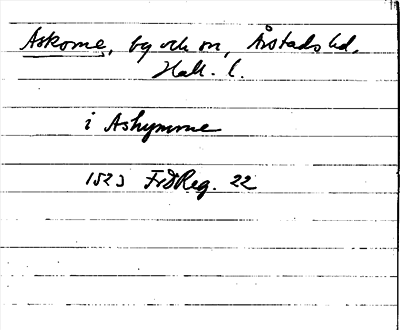 Askome, by och sn, Årstads hd,
Hall. l.
i Askymme
1523 FrdReg. 22